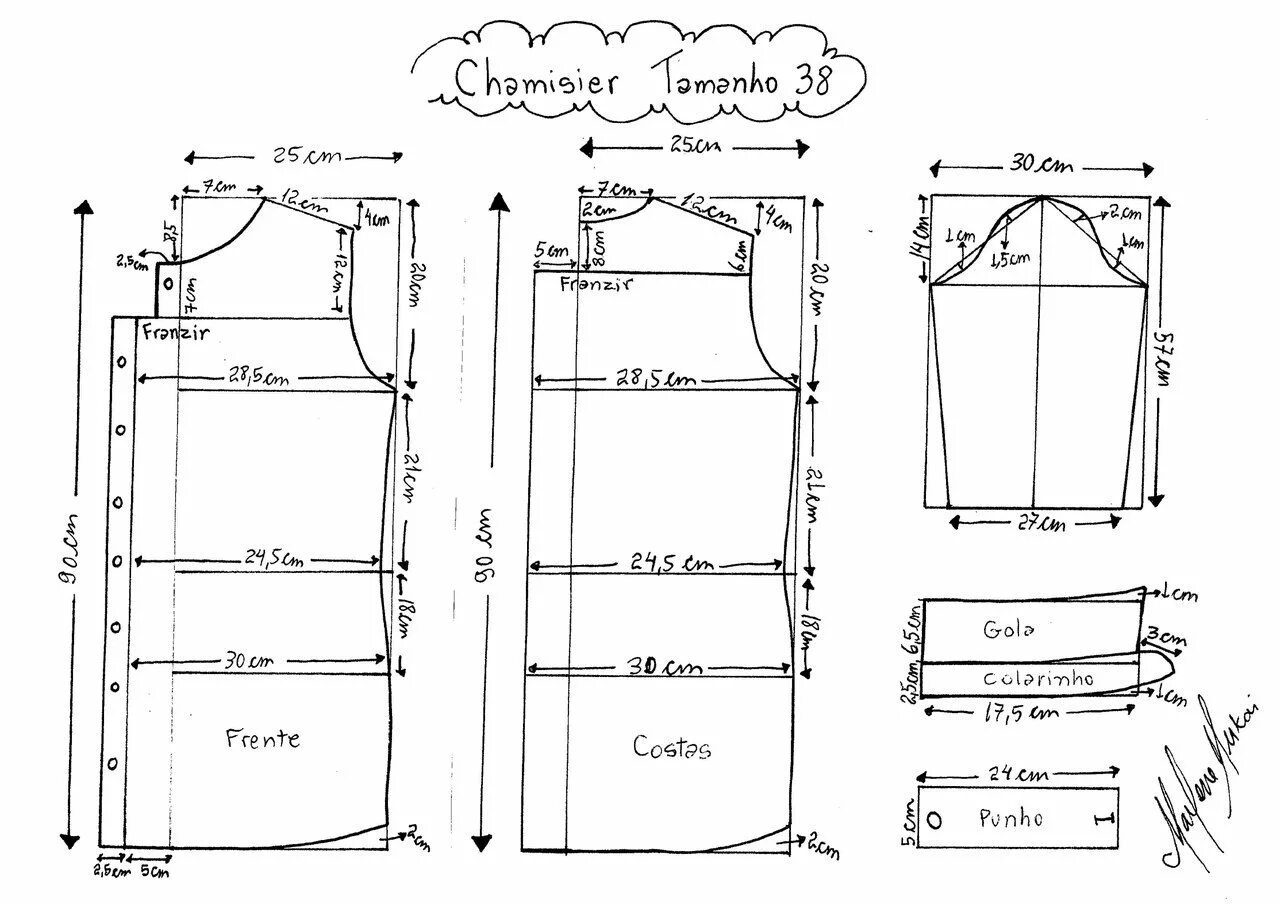 Chamisier Tamanho 38
25cm
7cm
12cm
4cm
8,5
2,5cm
7cm
12cm
20cm
Franzir
28,5cm
21cm
24,5cm
18cm
30cm
90cm
Frente
2cm
2,5cm
5cm
25cm
7cm
2cm
12cm
4cm
8cm
5cm
6cm
20cm
Franzir
28,5cm
21cm
24,5cm
18cm
30cm
90cm
Costas
2cm
30cm
14cm
1cm
1,5cm
2cm
1cm
57cm
27cm
Gola
1cm
6,5cm
3cm
Colarinho
2,5cm
1cm
17,5cm
24cm
5cm
Punho
Marlene Mukai